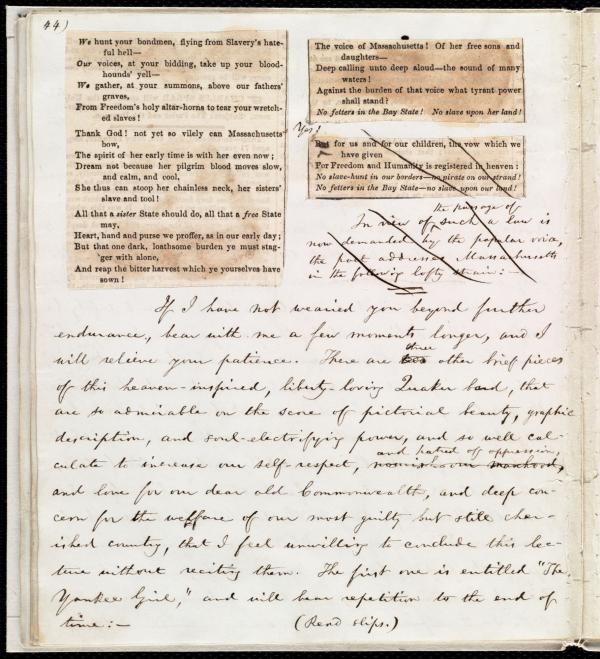 44)
We hunt your bondmen, flying from Slavery's hate-
ful hell—
Our voices, at your bidding, take up your blood-
hounds' yell—
We gather, at your summons, above our fathers'
graves,
From Freedom's holy altar-horns to tear your wretch-
ed slaves!
Thank God! not yet so vilely can Massachusetts
bow,
The spirit of her early time is with her even now;
Dream not because her pilgrim blood moves slow,
and calm, and cool,
She thus can stoop her chainless neck, her sisters'
slave and tool!
All that a sister State should do, all that a free State
may,
Heart, hand and purse we proffer, as in our early day;
But that one dark, loathsome burden ye must stag-
'ger with alone,
And reap the bitter harvest which ye yourselves have
sown!
The voice of Massachusetts! Of her free sons and
daughters—
Deep calling unto deep aloud—the sound of many
waters!
Against the burden of that voice what tyrant power
shall stand?
No fetters in the Bay State! No slave upon her land!
Yes!
But for us and for our children, the vow which we
have given
For Freedom and Humanity is registered in heaven:
No slave-hunt in our borders—no pirate on our strand!
No fetters in the Bay State—no slave upon our land!
the passage of
In view of such a law is
now demanded by the popular voice,
the poet addresses Massachusetts
in the following lofty strain:—
If I have not wearied you beyond further
endurance, bear with me a few moments longer, and I
will relieve your patience. There are two three other brief pieces
of this heaven-inspired, liberty-loving Quaker bard, that
are so admirable on the score of pictorial beauty, graphic
description, and soul-electrifying power, and so well cal-
and hatred of oppression,
culate to increase our self-respect, nourish our manhood,
and love for our dear old Commonwealth, and deep con-
cern for the welfare of our most guilty but still cher-
ished country, that I feel unwilling to conclude this lec-
ture without reciting them. The first one is entitled "The
Yankee Girl," and will bear repetition to the end of
time:— (Read slips.)